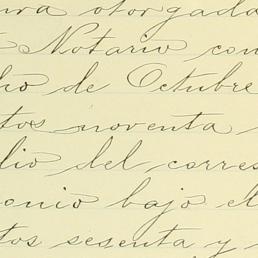 ura otorgada
Notario con
de Octubre
tos noventa
lio del corres
onio bajo el
tos sesenta y